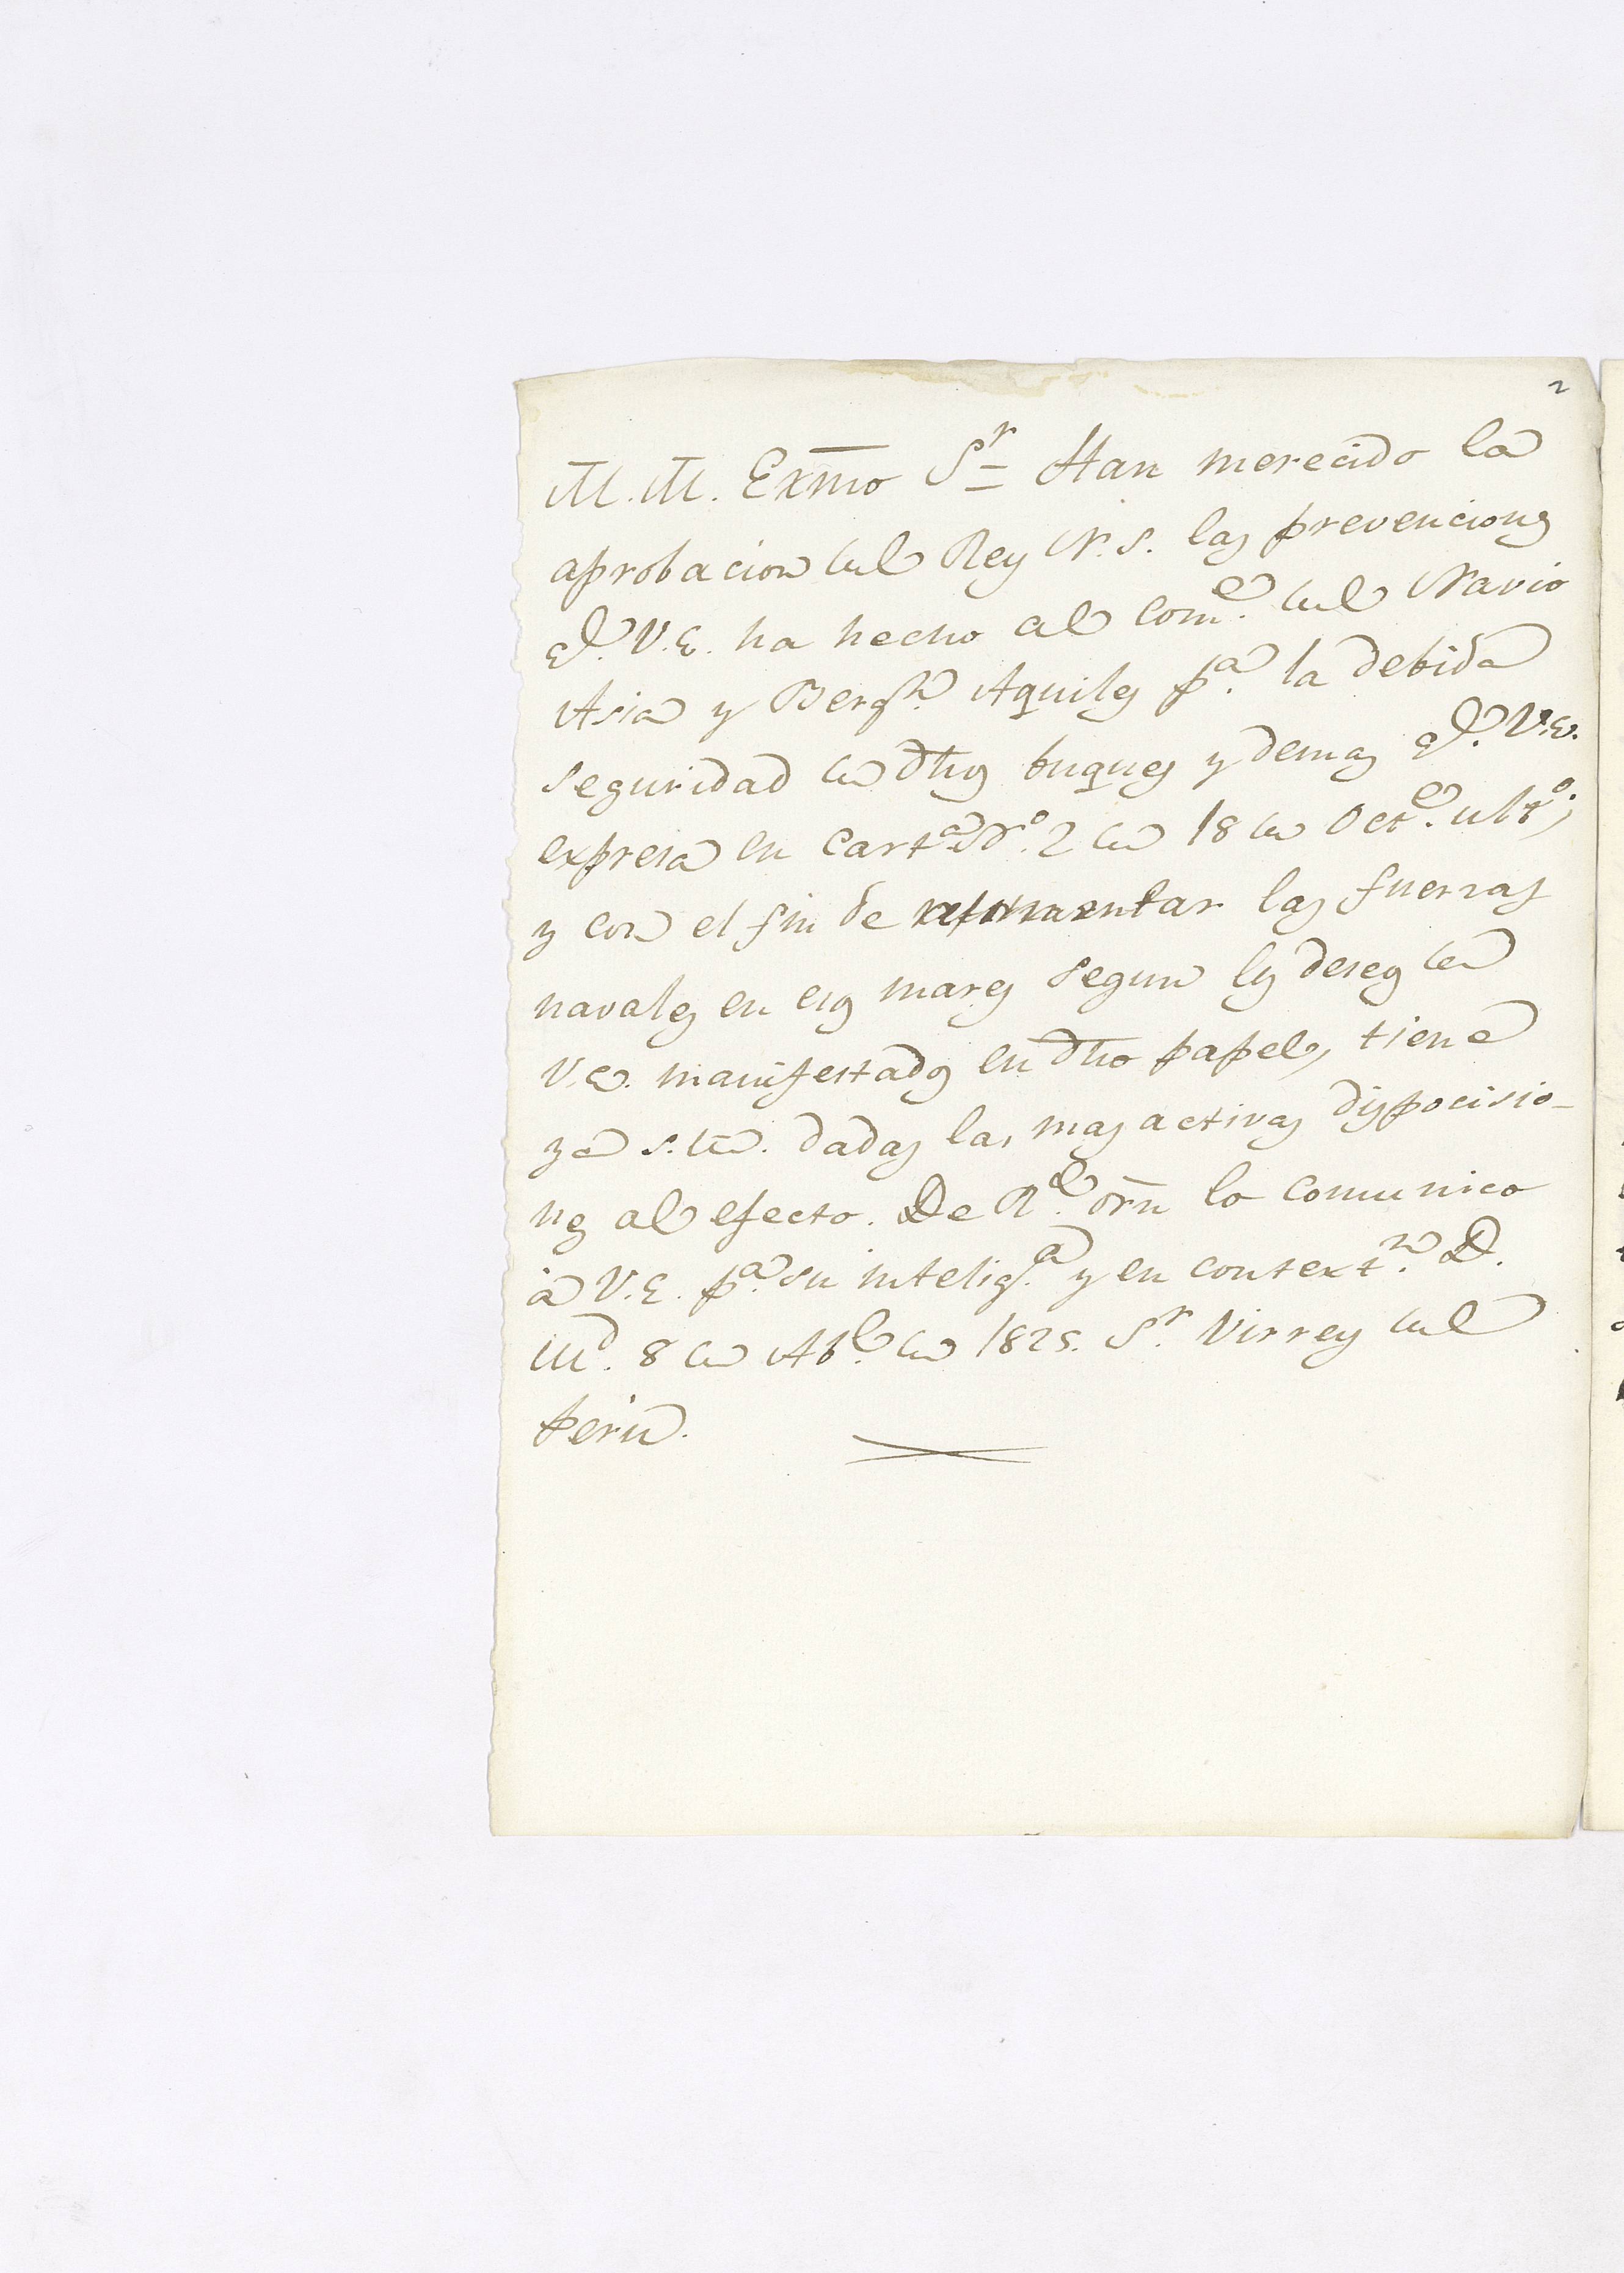 2
M. M. Exmo Sr = Han merecido la
aprobacion del Rey N. S. las prevenciones
q.e V.E. ha hecho al Com.e del Navio
Asia y Berg.n Aquiles p.a la debida
seguridad de dhos buques y demas q.e V.E.
expresa en carta N.o 2 de 18 de Oct.e ult.o;
y con el fin de las fuerzas
navales en esos mares segun los deseos de
V.E. manifestados en dho papel, tiene
ya S. M. dadas las mas activas dispocisio-
nes al efecto. De R.l orn lo comunico
á V.E. p.a su intelig.a y en context.n D.
M.d 8 de Ab.l de 1825. S.r Virrey del
Perú.